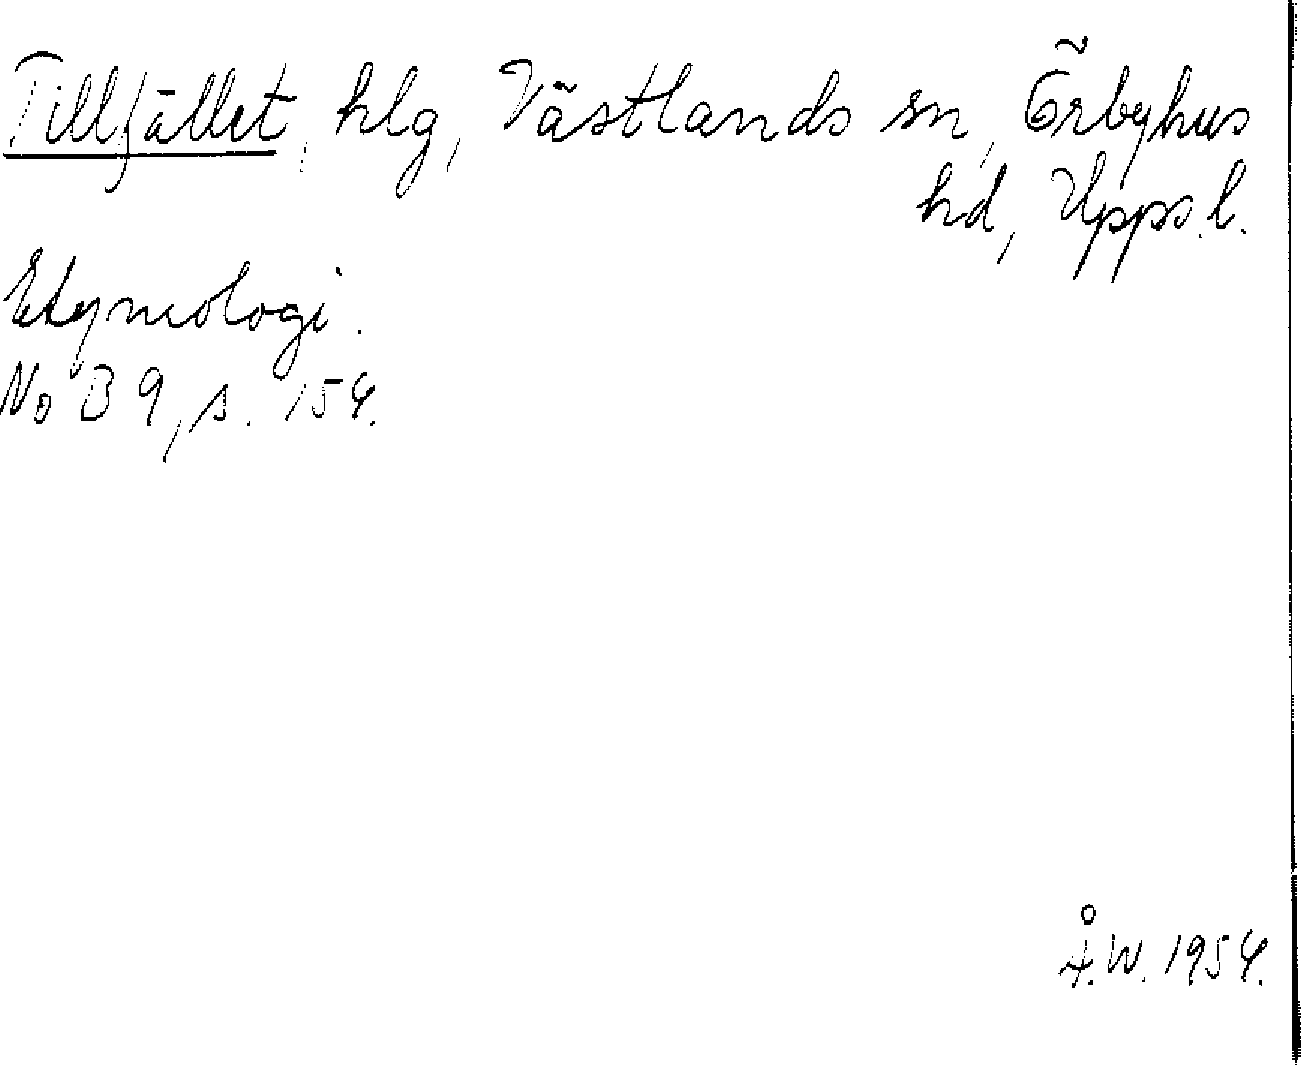 Tillfället, hlg, Västlands sn, Örbyhus
hd, Upps. l.
Etymologi.
No B 9, s. 154.
Å.W. 1954.